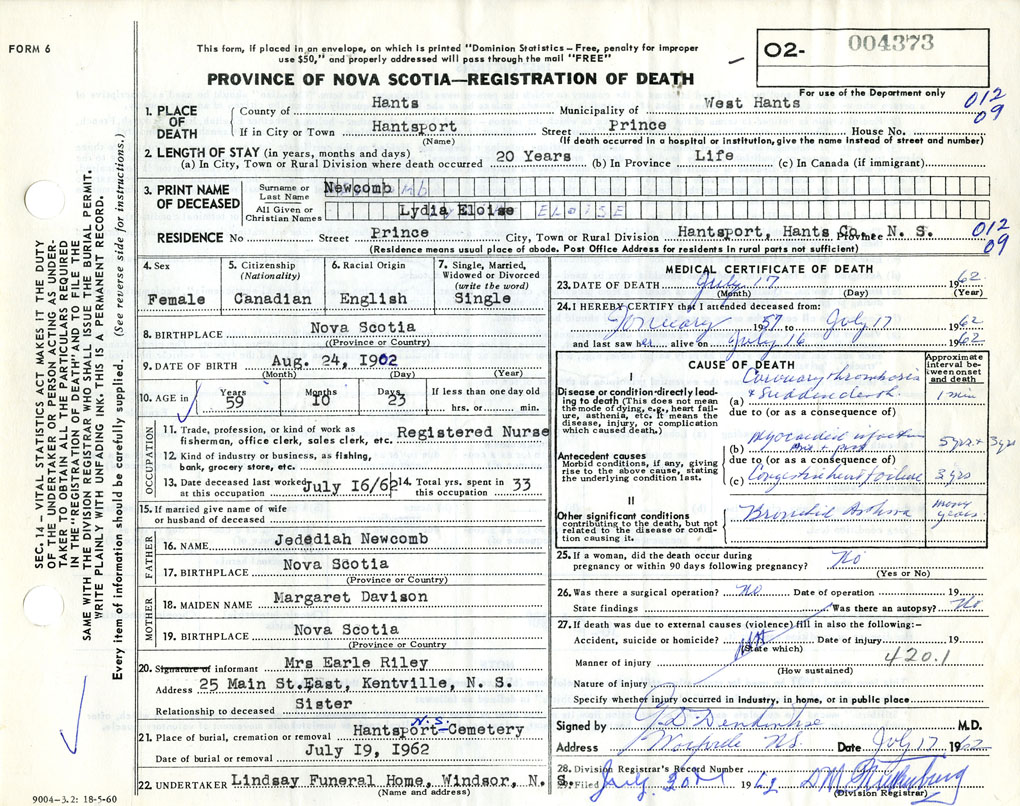 FORM 6
This form, if placed in an envelope, on which is printed "Dominion Statistics – Free, penalty for improper
use $50," and properly addressed will pass through the mail "FREE"
PROVINCE OF NOVA SCOTIA—REGISTRATION OF DEATH
O2- 004373
For use of the Department only
012
09
1. PLACE OF DEATH
County of Hants Municipality of West Hants
If in City or Town Hantsport Street Prince House No.
(Name) (If death occurred in a hospital or institution, give the name instead of street and number)
2. LENGTH OF STAY (in years, months and days)
(a) In City, Town or Rural Division where death occurred 20 Years (b) In Province Life (c) In Canada (if immigrant)
3. PRINT NAME OF DECEASED
Surname or Last Name Newcomb
All Given or Christian Names Lydia Eloise ELOISE
RESIDENCE No Street Prince City, Town or Rural Division Hantsport, Hants Co., Province N. S.
(Residence means usual place of abode. Post Office Address for residents in rural parts not sufficient)
012
09
4. Sex
Female
5. Citizenship
(Nationality)
Canadian
6. Racial Origin
English
7. Single, Married,
Widowed or Divorced
(write the word)
Single
8. BIRTHPLACE Nova Scotia
((Province or Country)
9. DATE OF BIRTH Aug. 24, 1902
(Month) (Day) (Year)
10. AGE in Years Months Days If less than one day old
59 10 23 hrs. or min.
OCCUPATION
11. Trade, profession, or kind of work as Registered Nurse
fisherman, office clerk, sales clerk, etc.
12. Kind of industry or business, as fishing,
bank, grocery store, etc.
13. Date deceased last worked at this occupation July 16/62 14. Total yrs. spent in this occupation 33
15. If married give name of wife
or husband of deceased
FATHER
16. NAME Jedediah Newcomb
17. BIRTHPLACE Nova Scotia
(Province or Country)
MOTHER
18. MAIDEN NAME Margaret Davison
19. BIRTHPLACE Nova Scotia
(Province or Country
20. Signature of informant Mrs Earle Riley
Address 25 Main St.East, Kentville, N. S.
Relationship to deceased Sister
N.S.
21. Place of burial, cremation or removal Hantsport-Cemetery
Date of burial or removal July 19, 1962
22. UNDERTAKER Lindsay Funeral Home, Windsor, N. S.
(Name and address)
9004–3.2: 18-5-60
MEDICAL CERTIFICATE OF DEATH
23. DATE OF DEATH July 17 1962
(Month) (Day) (Year)
24. I HEREBY CERTIFY that I attended deceased from:
January 1957 to July 17 1962
and last saw her alive on July 16 1962
CAUSE OF DEATH
Approximate interval between onset and death
I
Disease or condition directly leading to death (This does not mean the mode of dying, e.g., heart failure, asthenia, etc. It means the disease, injury, or complication which caused death.)
(a) Coronary thrombosis
& sudden death. 1 min
due to (or as a consequence of)
Antecedent causes
Morbid conditions, if any, giving rise to the above cause, stating the underlying condition last.
(b) Myocardial infarction 5 yrs + 3 yrs
due to (or as a consequence of)
(c) Congestive heart failure 3 yrs
II
Other significant conditions
contributing to the death, but not related to the disease or condition causing it.
Bronchial Asthma many years
25. If a woman, did the death occur during
pregnancy or within 90 days following pregnancy? No
(Yes or No)
26. Was there a surgical operation? No. Date of operation 19
State findings Was there an autopsy? No
27. If death was due to external causes (violence) fill in also the following:–
Accident, suicide or homicide? Date of injury 19
(State which)
420.1
Manner of injury
(How sustained)
Nature of injury
Specify whether injury occurred in industry, in home, or in public place
Signed by M.D.
Address Wolfville N.S. Date July 17 1962
28. Division Registrar's Record Number
Filed July 20 1962
(Division Registrar)
SEC. 14 – VITAL STATISTICS ACT MAKES IT THE DUTY
OF THE UNDERTAKER OR PERSON ACTING AS UNDER-
TAKER TO OBTAIN ALL THE PARTICULARS REQUIRED
IN THE "REGISTRATION OF DEATH" AND TO FILE THE
SAME WITH THE DIVISION REGISTRAR WHO SHALL ISSUE THE BURIAL PERMIT.
WRITE PLAINLY WITH UNFADING INK. THIS IS A PERMANENT RECORD.
Every item of information should be carefully supplied. (See reverse side for instructions.)